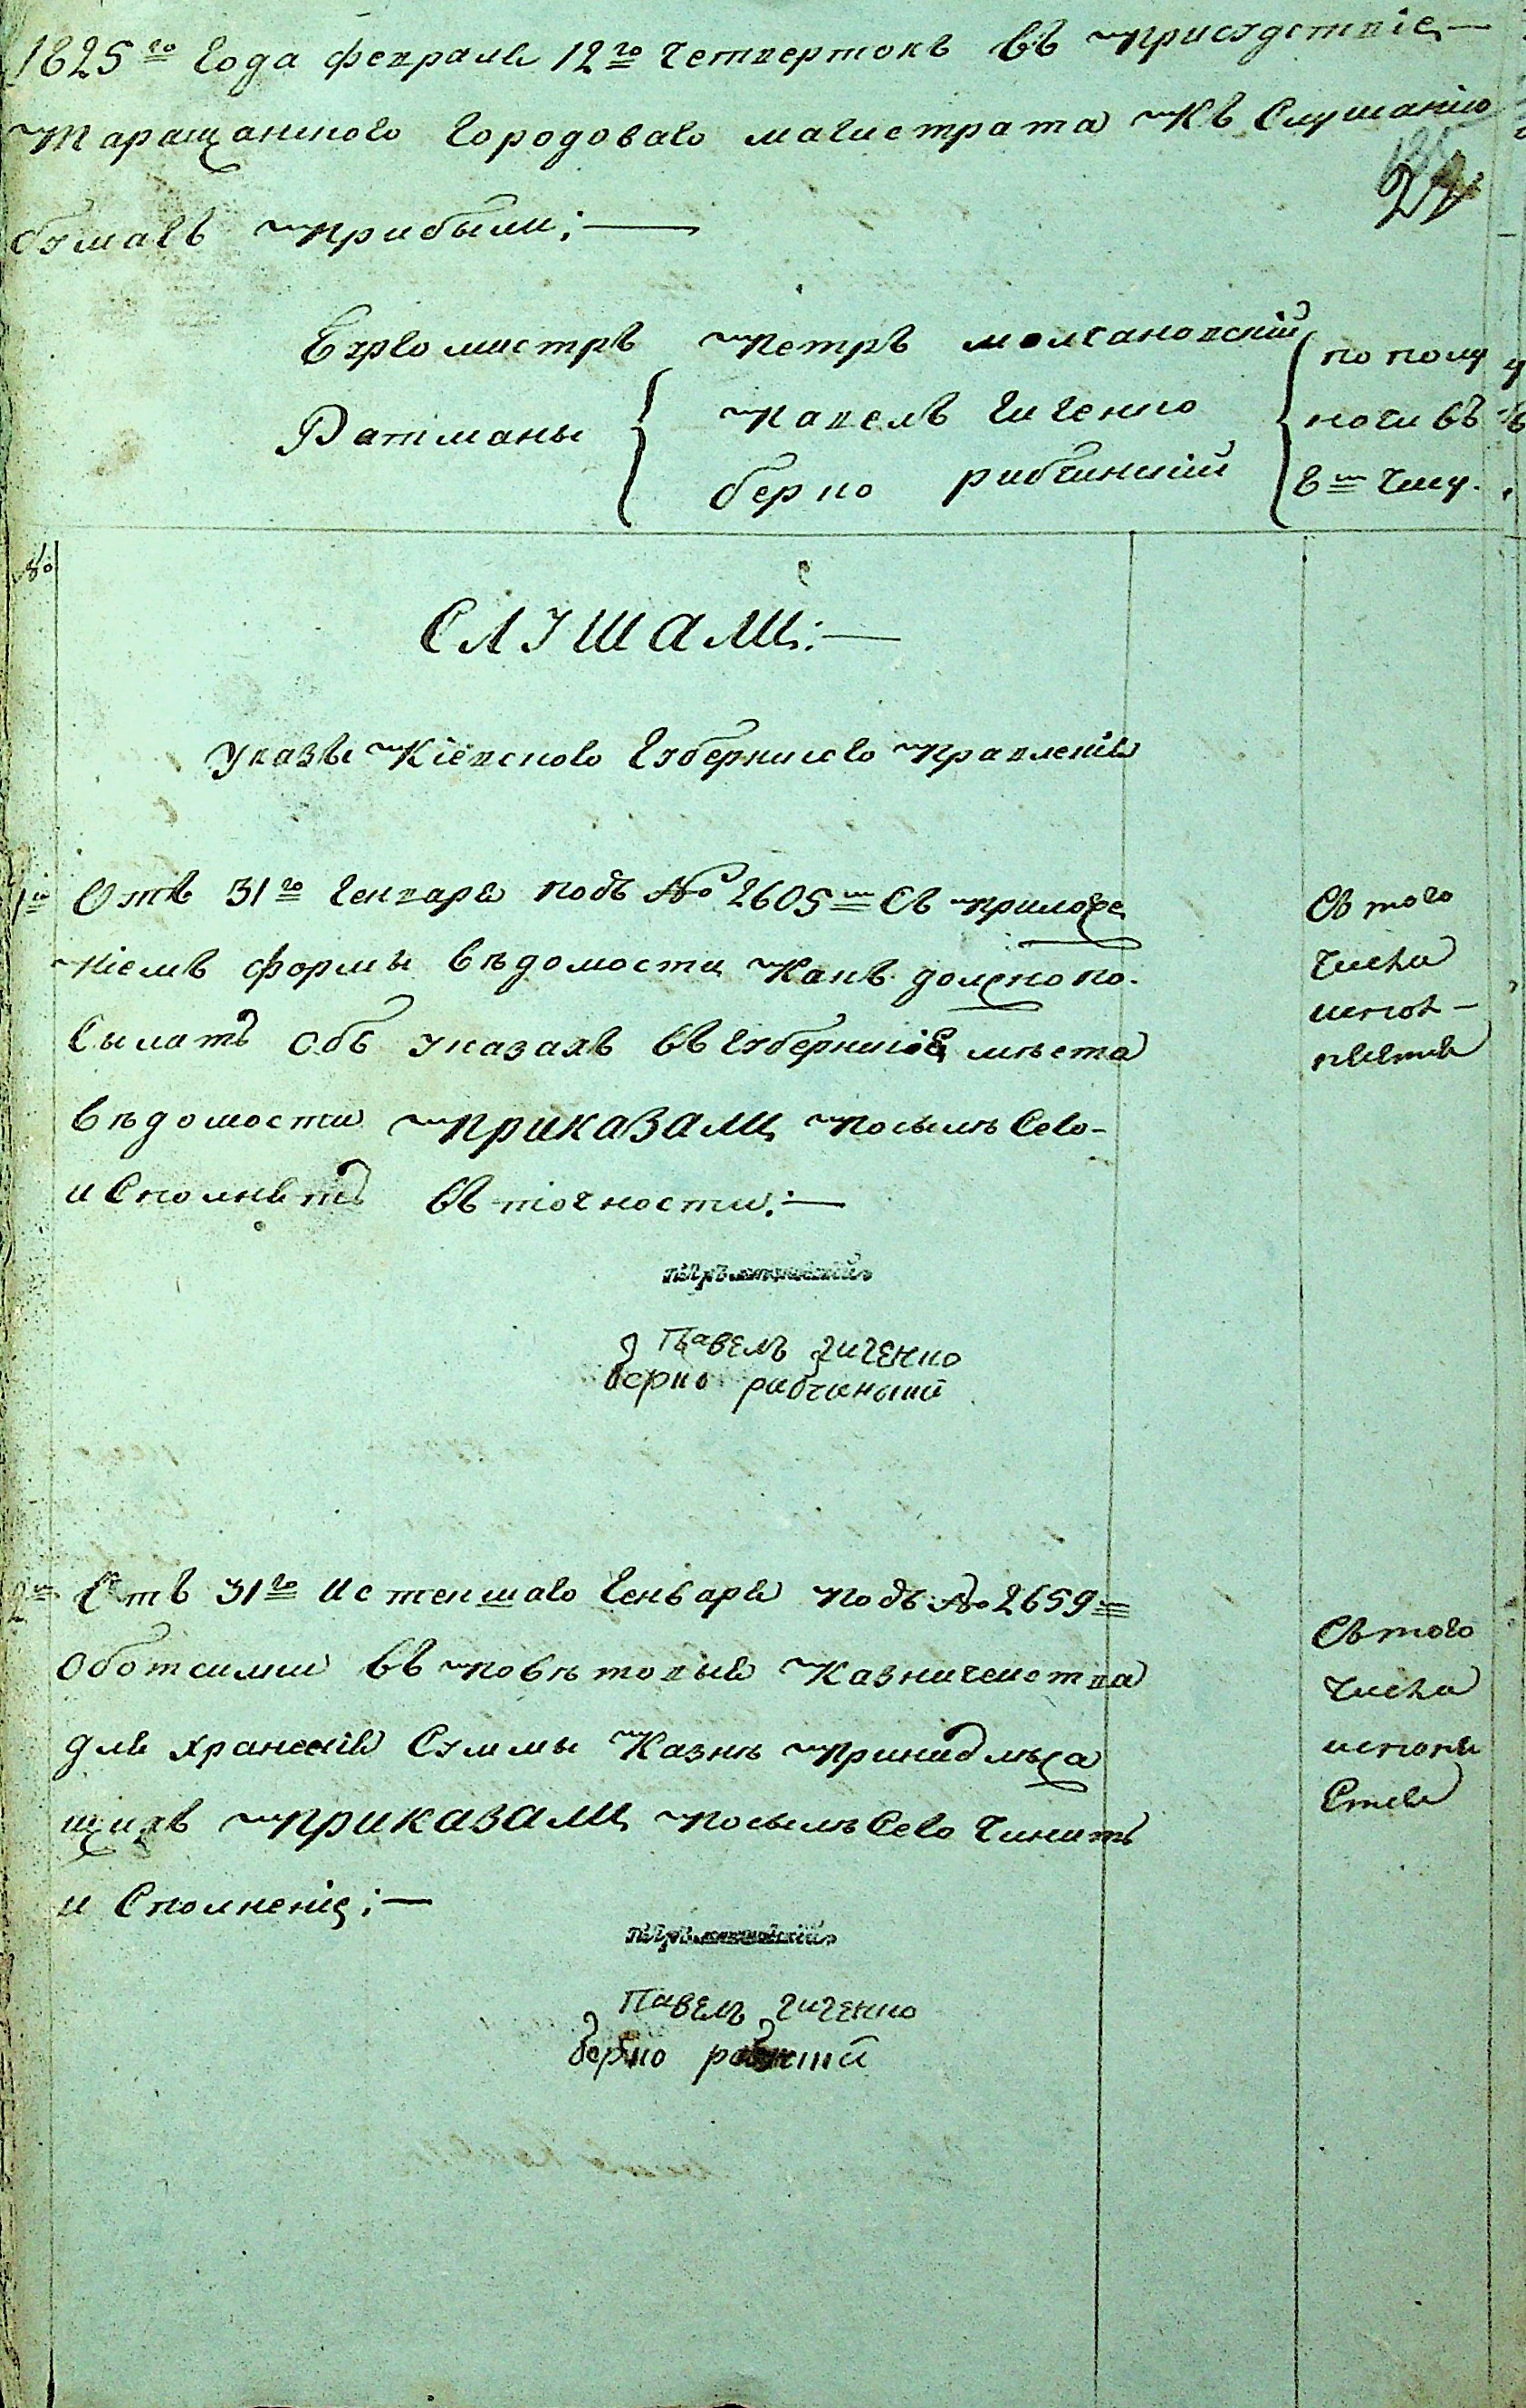 1825го года февраля 12го четвертокъ въ присудствіе —
Таращанского городоваго магистрата къ слушанію
бумагъ прибыли: —
Бургомистръ Петръ молчановскій
Ратманы
Павелъ Чиченко
берко рибчинскій
по полу
ночи въ
8м часу.
№
СЛУШАЛИ: —
указы Кіевского губернского правленія
1е Отъ 31го генваря подъ № 2605м съ приложе
ніемъ формы вѣдомости какъ должно по-
сылать объ указахъ въ губернскіе мѣста
вѣдомости приказали посылѣ сего
исполнять въ точности: —
Съ того
числа
испол-
няется
Павелъ Чиченко
берко рибчинский
2е Отъ 31го истекшаго генваря подъ № 2659м
оботсилки въ повѣтовыя казничейства
для храненія суммы казнѣ принадлѣжа
щихъ приказали посылѣ сего чинить
исполненіе: —
Съ того
числа
исполня
стся
Павелъ Чиченко
берко